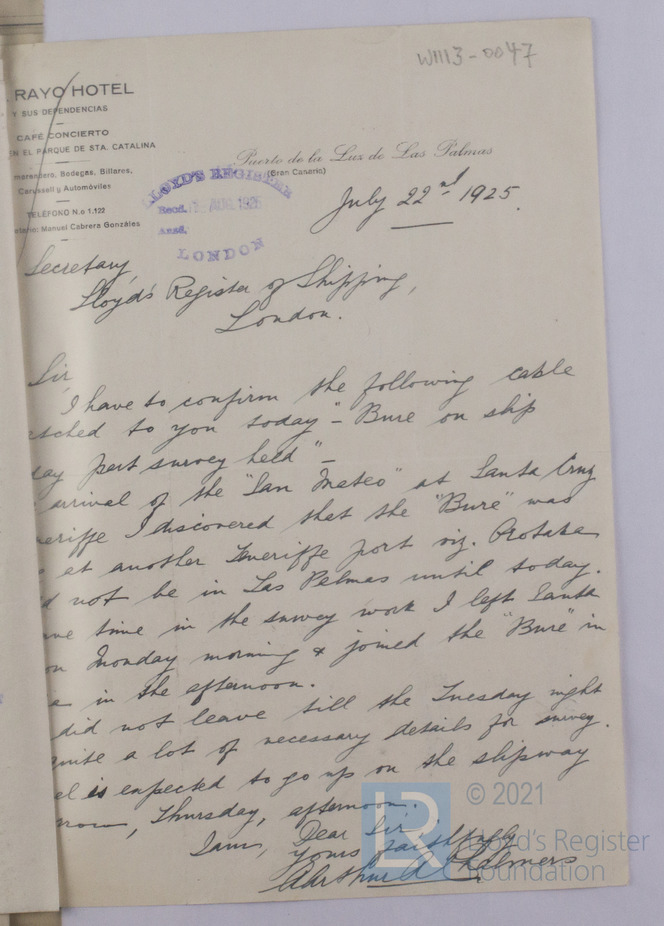 W1113-0047
RAYO HOTEL
Y SUS DEPENDENCIAS
CAFÉ CONCIERTO
EN EL PARQUE DE STA. CATALINA
Bodegas, Billares,
Carussell y Automóviles
TELÉFONO N.o 1.122
Manuel Cabrera Gonzáles
Puerto de la Luz de Las Palmas
(Gran Canaria)
LLOYD'S REGISTER
Recd. AUG. 1925
Ansd.
LONDON
July 22nd 1925.
Secretary,
Lloyd's Register of Shipping,
London.
Sir,
I have to confirm the following cable
to you today - "Bure on slip
part survey held" -
arrival of the "San Mateo" at Santa Cruz
I discovered that the "Bure" was
at another Teneriffe port viz.
not be in Las Palmas until today.
time in the survey work I left Santa
on Monday morning & joined the "Bure" in
in the afternoon.
did not leave till the Tuesday night
quite a lot of necessary details for survey.
is expected to go up on the slipway
Thursday, afternoon.
I am, Dear Sir,
yours faithfully
Arthur Chalmers
LR
© 2021
Lloyd's Register
Foundation